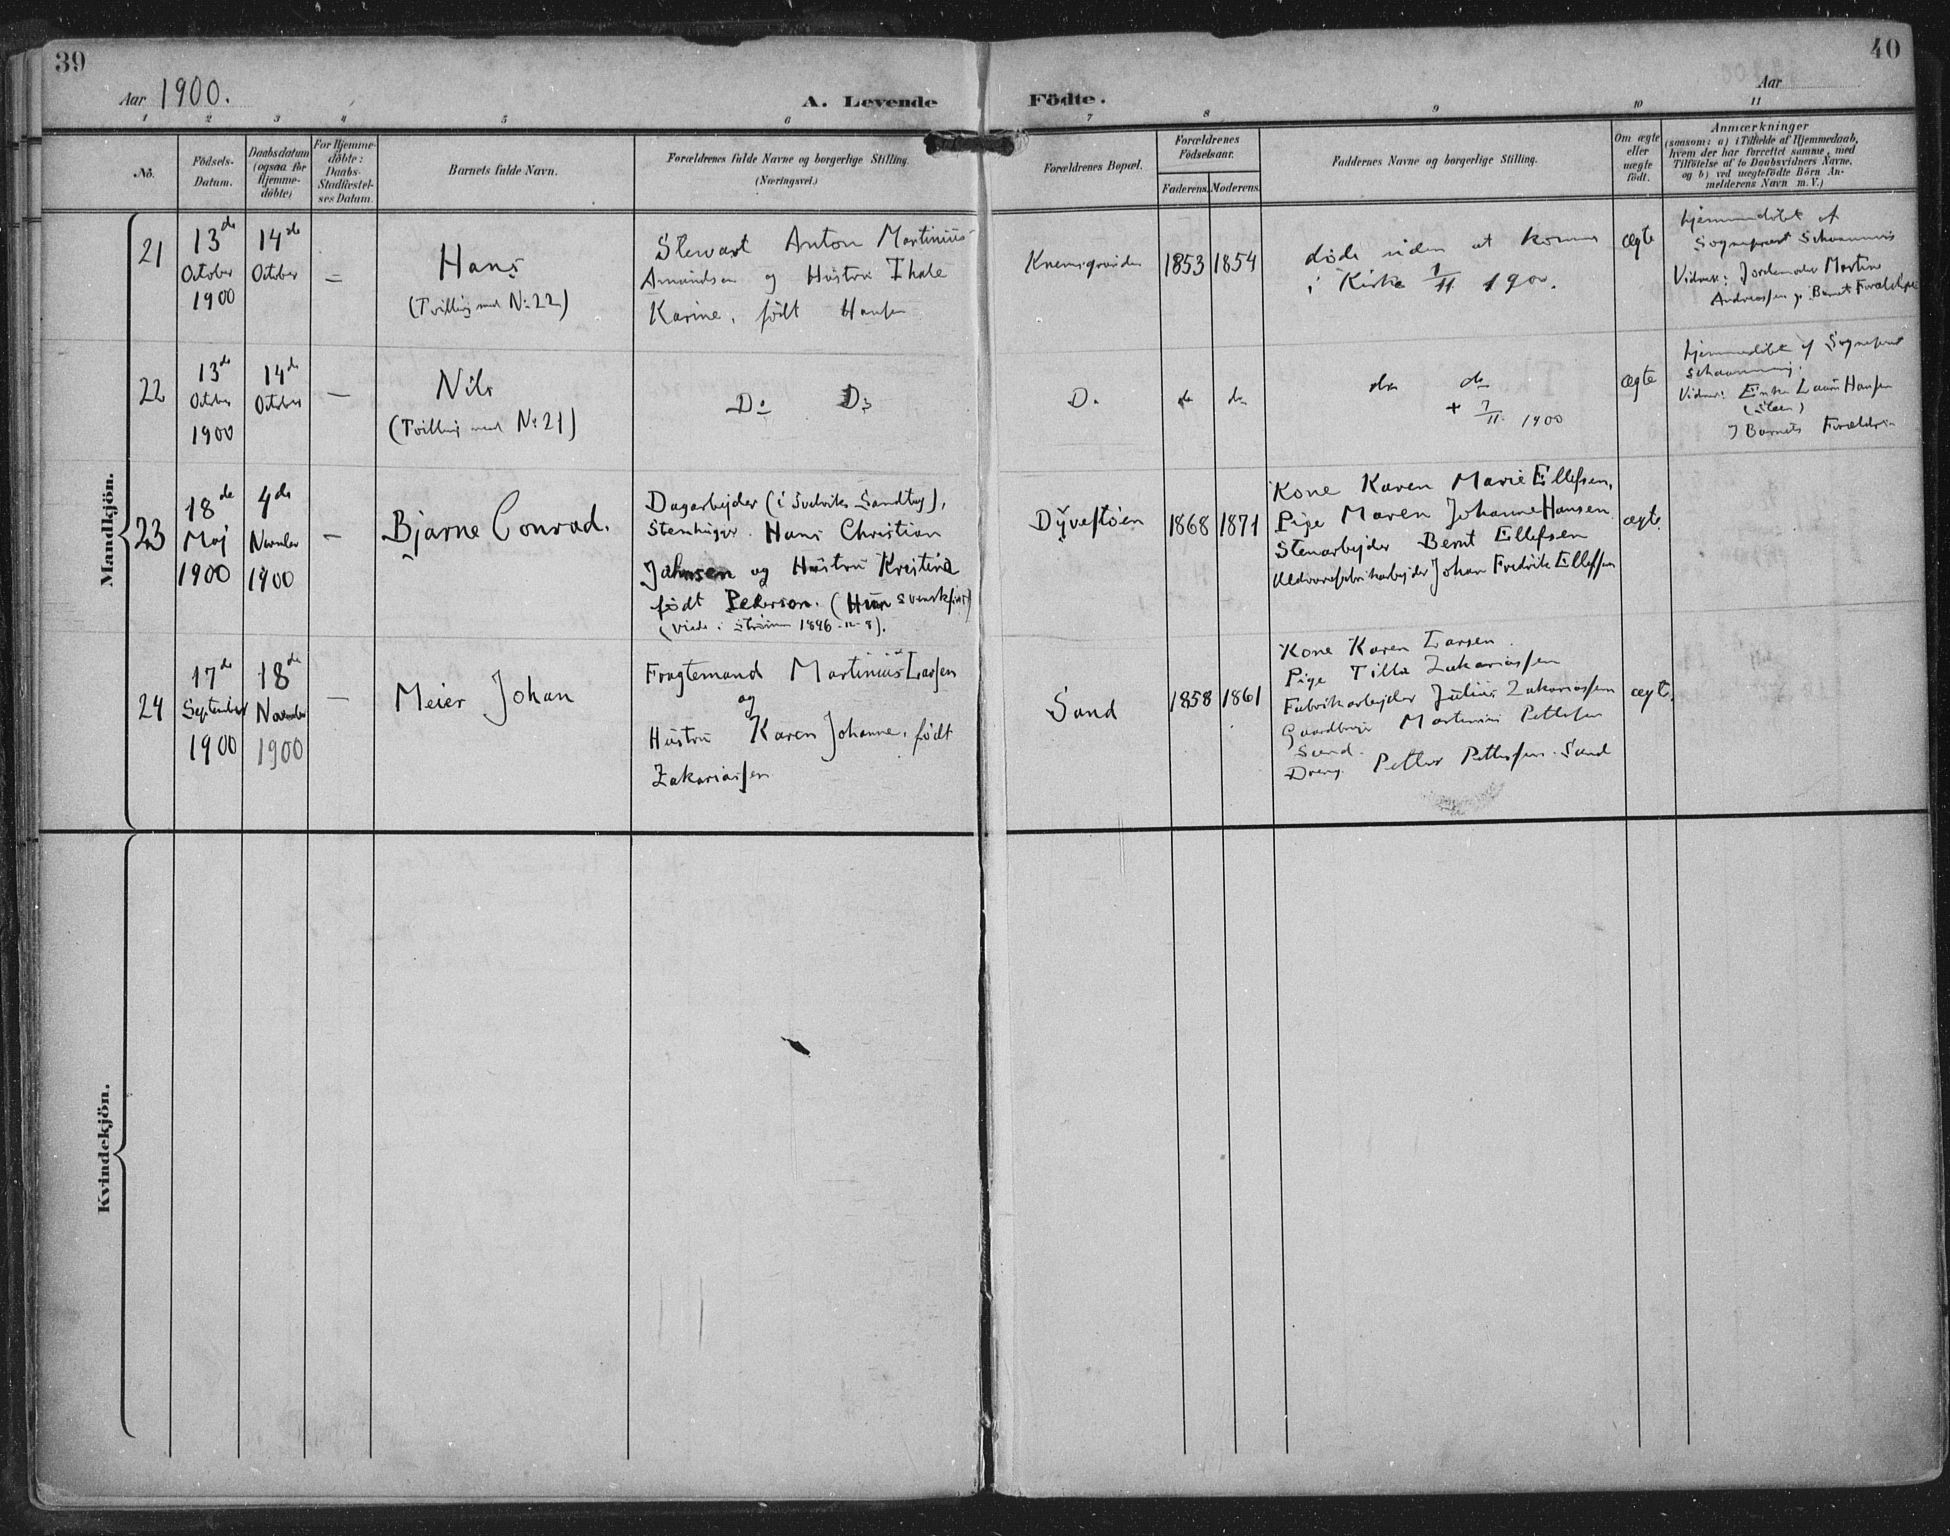 39
40
Aar 1900.
A. Levende
Födte.
Aar
1 2 3 4 5 6 7 8 9 10 11
No.
Födsels-
Datum.
Daabsdatum
(ogsaa for
Hjemme-
döbte)
For Hjemme-
döbte:
Daabs-
Stadfæstel-
ses Datum.
Barnets fulde Navn.
Forældrenes fulde Navne og borgerlige Stilling.
(Næringsvei.)
Forældrenes Bopæl.
Forældrenes
Födselsaar.
Faderens. Moderens.
Faddernes Navne og borgerlige Stilling.
Om ægte
eller
uægte
födt.
Anmærkninger
(saasom: a) i Tilfælde af Hjemmedaab,
hvem der har forrettet samme, med
Tilföielse af to Daabsvidners Navne,
og b) ved uægtefödte Börn An-
melderens Navn m. V.)
Mandkjön.
21
13de
October
1900
14de
October
–
Hans
(Tvilling med No 22)
Stewart Anton Martinius
Amundsen og Hustru Thale
Karine, født Hansen
1853
1854
døde uden at komme
i Kirke 1/11 1900.
ægte
hjemmedøbt af
Sognepræst Schaanning
Vidner: Jordemoder Martine
Andreassen og Barnets Forældre
22
13de
October
1900
14de
October
–
Nils
(Tvilling med No 21)
Do Do
Do
do
do
do do
+ 7/11 1900
ægte
hjemmedøbt af Sognepræst
Schaanning.
Vidner: Enke Hansen
Barnets Forældre
23
18de
Maj
1900
4de
November
1900
–
Bjarne Conrad.
Dagarbejder (i Svelviks Sandtag),
Stenhugger Hans Christian
Jahnsen og Hustru Kristina
født Pederson. (Hun svenskfødt)
(Viede i Strømm 1896-12-8).
Dyvestøen
1868
1871
Kone Karen Marie Ellefsen,
Pige Maren Johanne Hansen
Stenarbejder Bernt Ellefsen
Johan Fredrik Ellefsen
ægte.
24
17de
September
1900
18de
November
1900
–
Meier Johan
Fragtemand Martinius Larsen
og
Hustru Karen Johanne, født
Zakariassen
Sand
1858
1861
Kone Karen Larsen.
Pige Tilla Zakariassen
Fabrikarbejder Julius Zakariassen
Gaardbruger Martinius Pettersen
Sand.
Dreng Petter Pettersen. Sand
ægte.
Kvindekjön.